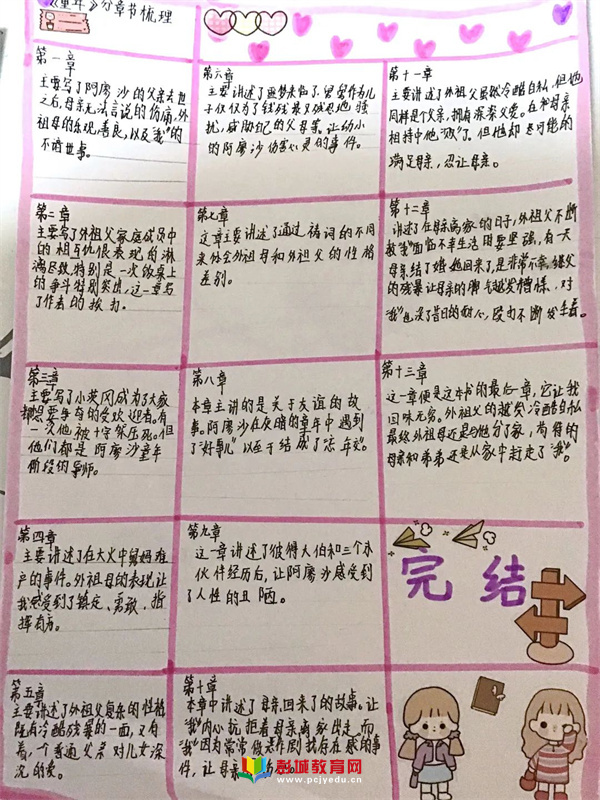 《童年》分章节梳理
第一章
主要写了阿廖沙的父亲去世
之后,母亲无法言说的伤痛,外
祖母的乐观,善良,以及“我”的
不谙世事。
第二章
主要写了外祖父家庭成员中
的相互仇恨表现的淋
漓尽致,特别是一次饭桌上
的争斗特别突出,这一章写
了作者的挨打。
第三章
主要写了小茨冈成为了大家
都想要争夺的受欢迎者。有
一次他被十字架压死。但
他们都是阿廖沙童年
阶段的导师。
第四章
主要讲述了在大火中舅妈难
产的事件。外祖母的表现让
我感受到了镇定、勇敢、指
挥有方。
第五章
主要讲述了外祖父复杂的性格
既有冷酷残暴的一面,又有
着,个普通父亲对儿女深
沉的爱。
第六章
主要讲述了噩梦来临了,舅舅作为儿
子仅仅为了钱残暴又
扰,威胁自己的父母等。让幼小
的阿廖沙伤害心灵的事件。
第七章
这章主要讲述了通过祷词的不同
来体会外祖母和外祖父的性格
差别。
第八章
本章主讲的是关于友谊的故
事。阿廖沙在灰暗的童年中遇到
了“好事儿”以至于结成了“忘年交”。
第九章
这一章讲述了彼得大伯和三个小
伙伴经历后,让阿廖沙感受到
了人性的丑陋。
第十章
本章中讲述了母亲回来了的故事。让
“我”内心抗拒着母亲离家出走,而
“我”因为常常做恶作剧找存在感的事
件,让母亲
第十一章
主要讲述了外祖父虽然冷酷自私,但他
同样是个父亲,拥有深奈父爱。在和母亲
相持中他“败”了。但他却尽可能的
满足母亲,忍让母亲。
第十二章
讲述了在母亲离家的日子,外祖父不断
教“我”面临不幸生活用要坚强,有一天
母亲结了婚,她回来了,是非常不幸,继父
的残暴让母亲的脾气越发糟糕,对
“我”也没了昔日的耐心,
第十三章
这一章便是这本书的最后一章,它让我
回味无穷。外祖父的越发冷酷自私
最终外祖母还是与他分了家,
母亲和弟弟还是从家中赶走了“我”。
完结
彭城教育网
www.pcjyedu.cn